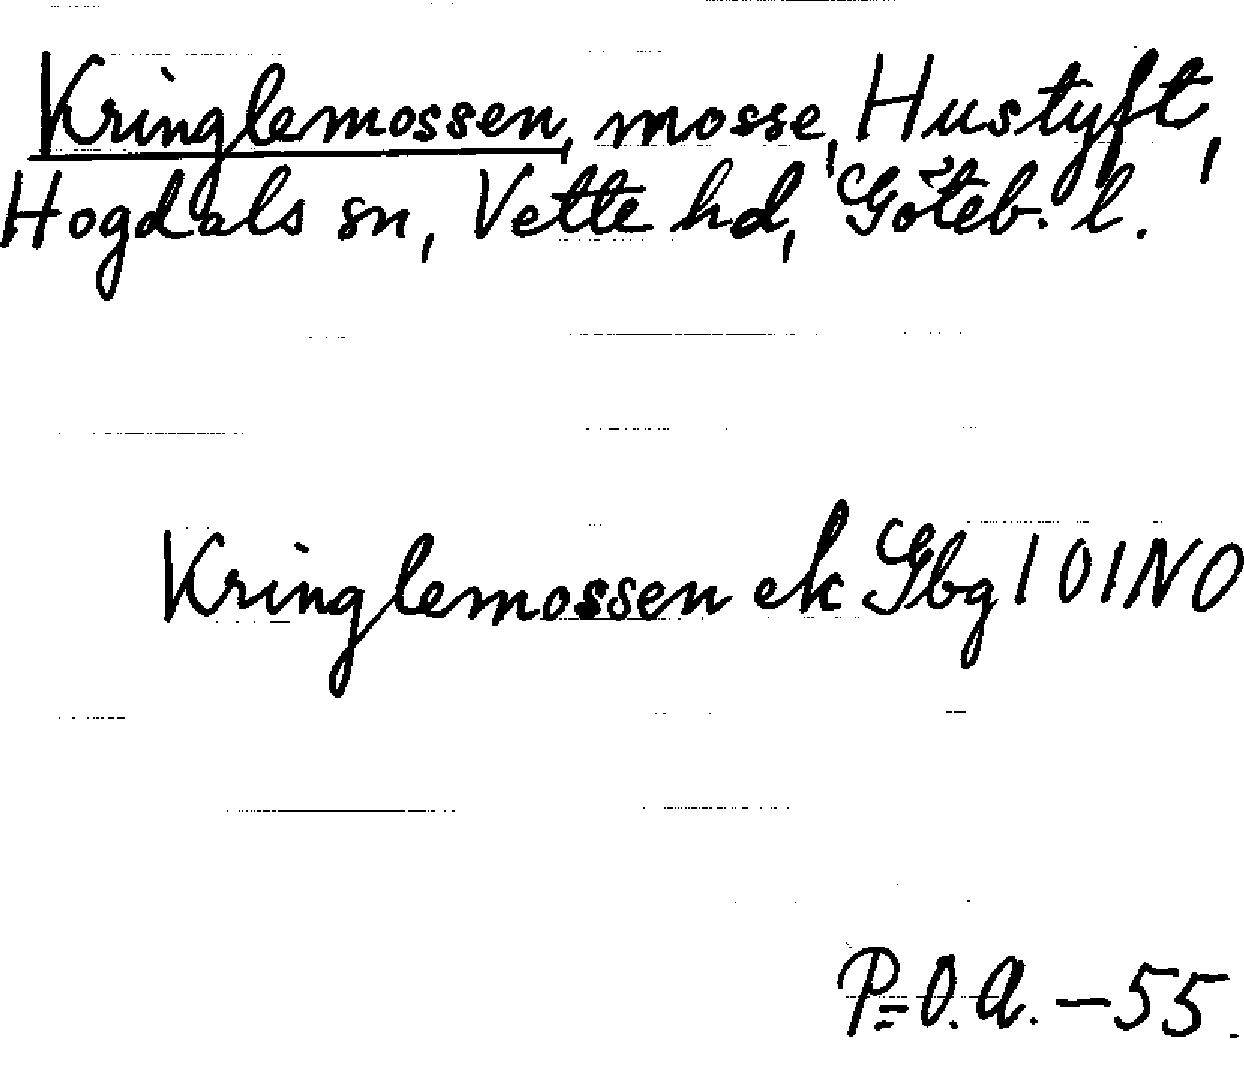 Kringlemossen, mosse, Hustyft,
Hogdals sn, Vette hd, Göteb. l.
Kringlemossen ek Gbg 101NO
P=O.A. – 55.